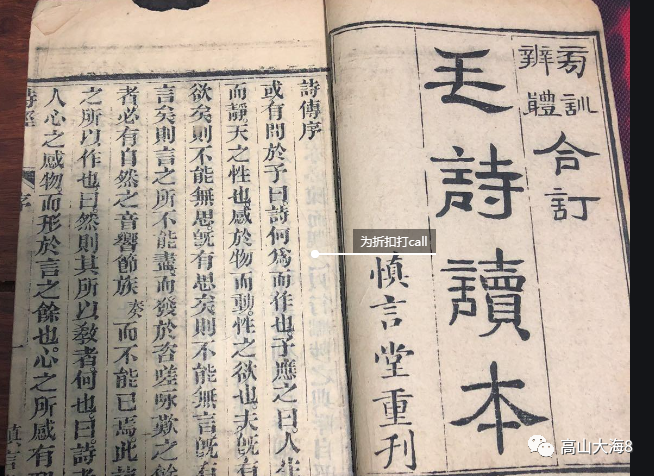 旁訓
辨體
合訂
毛詩讀本
慎言堂重刊
詩傳序
或有問於予曰詩何爲而作也予應之曰人生
而靜天之性也感於物而動性之欲也夫旣有
欲矣則不能無思旣有思矣則不能無言旣有
言矣則言之所不能盡而發於咨嗟咏歎之餘
者必有自然之音響節族奏而不能已焉此詩
之所以作也曰然則其所以教者何也曰詩者
人心之感物而形於言之餘也心之所感有
詩經 序 一
为折扣打call
高山大海8